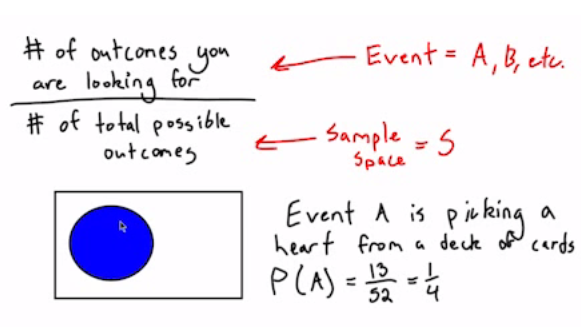 # of outcomes you
are looking for
# of total possible
outcomes
Event = A, B, etc.
Sample
Space = S
Event A is picking a
heart from a deck of cards
P(A) = 13/52 = 1/4